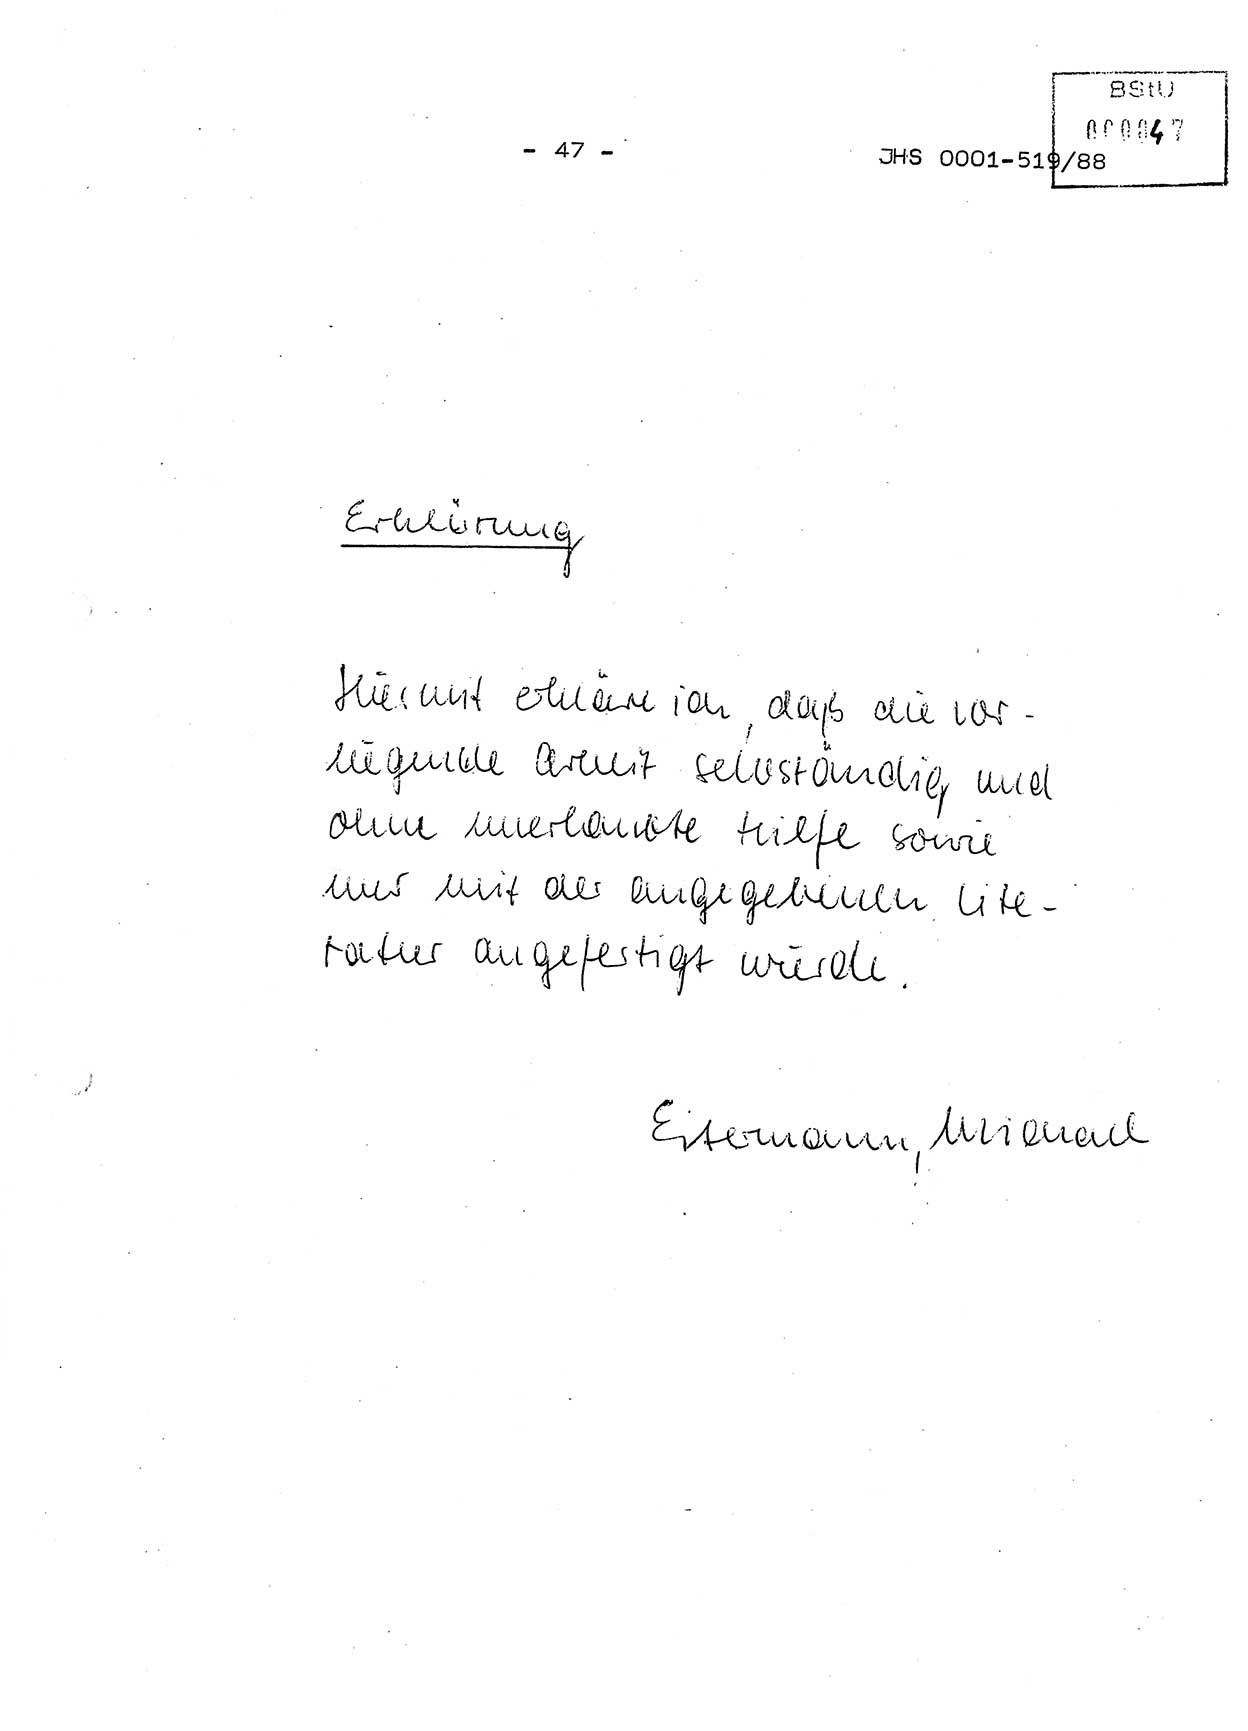 BStU
000047
- 47 -
JHS 0001-519/88
Erklärung
Hiermit erkläre ich, daß die vor-
liegende Arbeit selbständig und
ohne unerlaubte Hilfe sowie
nur mit der angegebenen Lite-
ratur angefertigt wurde.
Eisermann, Michael